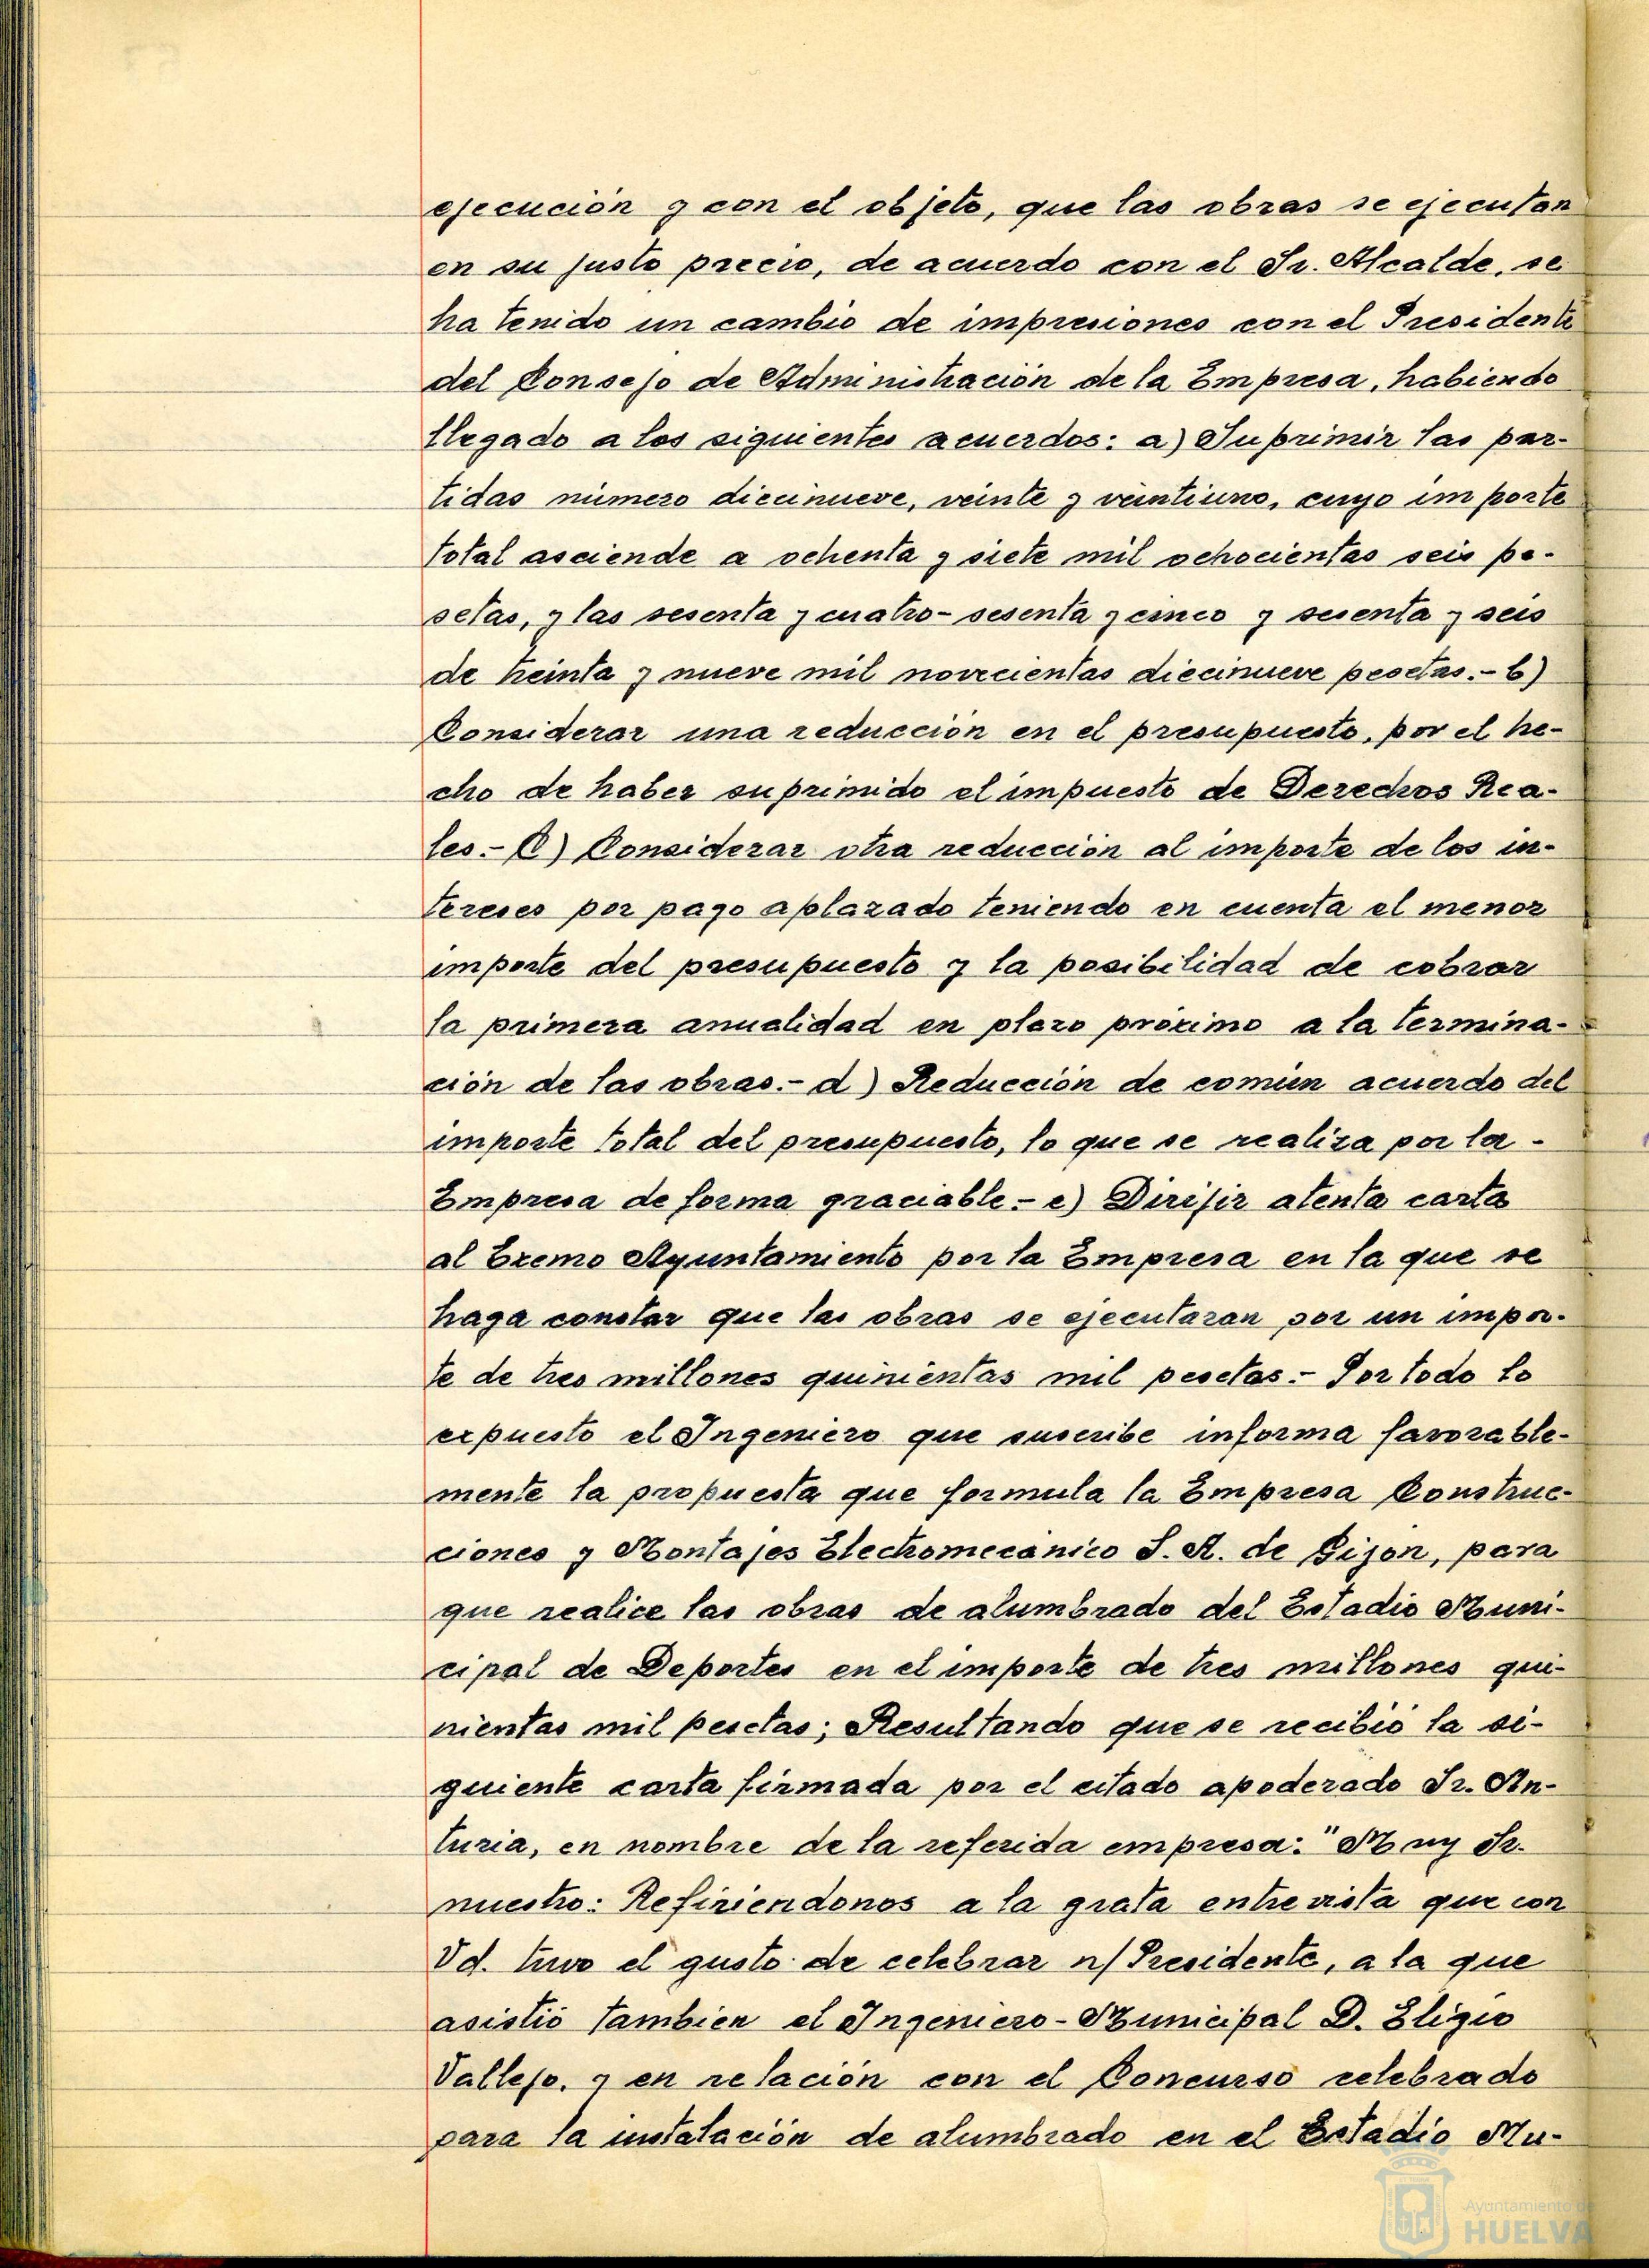 ejecución y con el objeto, que las obras se ejecutan
en su justo precio, de acuerdo con el Sr. Alcalde, se
ha tenido un cambio de impresiones con el Presidente
del Consejo de Administración de la Empresa, habiendo
llegado a los siguientes acuerdos: a) Suprimir las par-
tidas número diecinueve, veinte y veintiuno, cuyo importe
total asciende a ochenta y siete mil ochocientas seis pe-
setas, y las sesenta y cuatro- sesenta y cinco y sesenta y seis
de treinta y nueve mil novecientas diecinueve pesetas.- b)
Considerar una reducción en el presupuesto, por el he-
cho de haber suprimido el impuesto de Derechos Rea-
les.- C) Considerar otra reducción al importe de los in-
tereses por pago aplazado teniendo en cuenta el menor
importe del presupuesto y la posibilidad de cobrar
la primera anualidad en plazo próximo a la termina-
ción de las obras.- d) Reducción de común acuerdo del
importe total del presupuesto, lo que se realiza por la -
Empresa de forma graciable.- e) Dirijir atenta carta
al Excmo Ayuntamiento por la Empresa en la que se
haga constar que las obras se ejecutaran por un impor-
te de tres millones quinientas mil pesetas.- Por todo lo
expuesto el Ingeniero que suscribe informa favorable-
mente la propuesta que formula la Empresa Construc-
ciones y Montajes Electromecánico S. A. de Gijon, para
que realice las obras de alumbrado del Estadio Muni-
cipal de Deportes en el importe de tres millones qui-
nientas mil pesetas; Resultando que se recibió la si-
guiente carta firmada por el citado apoderado Sr. An-
turia, en nombre de la referida empresa: "Muy Sr.
nuestro: Refiriendonos a la grata entrevista que con
Vd. tuvo el gusto de celebrar n/ Presidente, a la que
asistió tambien el Ingeniero-Municipal D. Eligio
Vallejo, y en relación con el Concurso celebrado
para la instalación de alumbrado en el Estadio Mu-
Ayuntamiento de
HUELVA